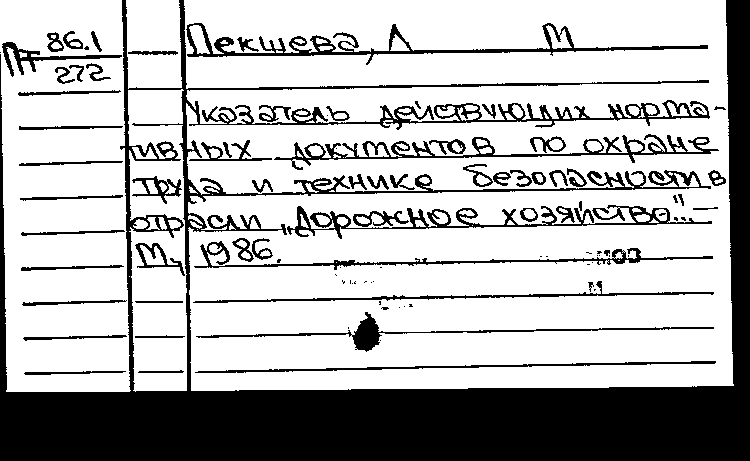 Пт 86.1 Пекшева, Л М
272
Указатель действующих норма-
тивных документов по охране
труда и технике безопасности в
отрасли „Дорожное хозяйство..."–
М., 1986.